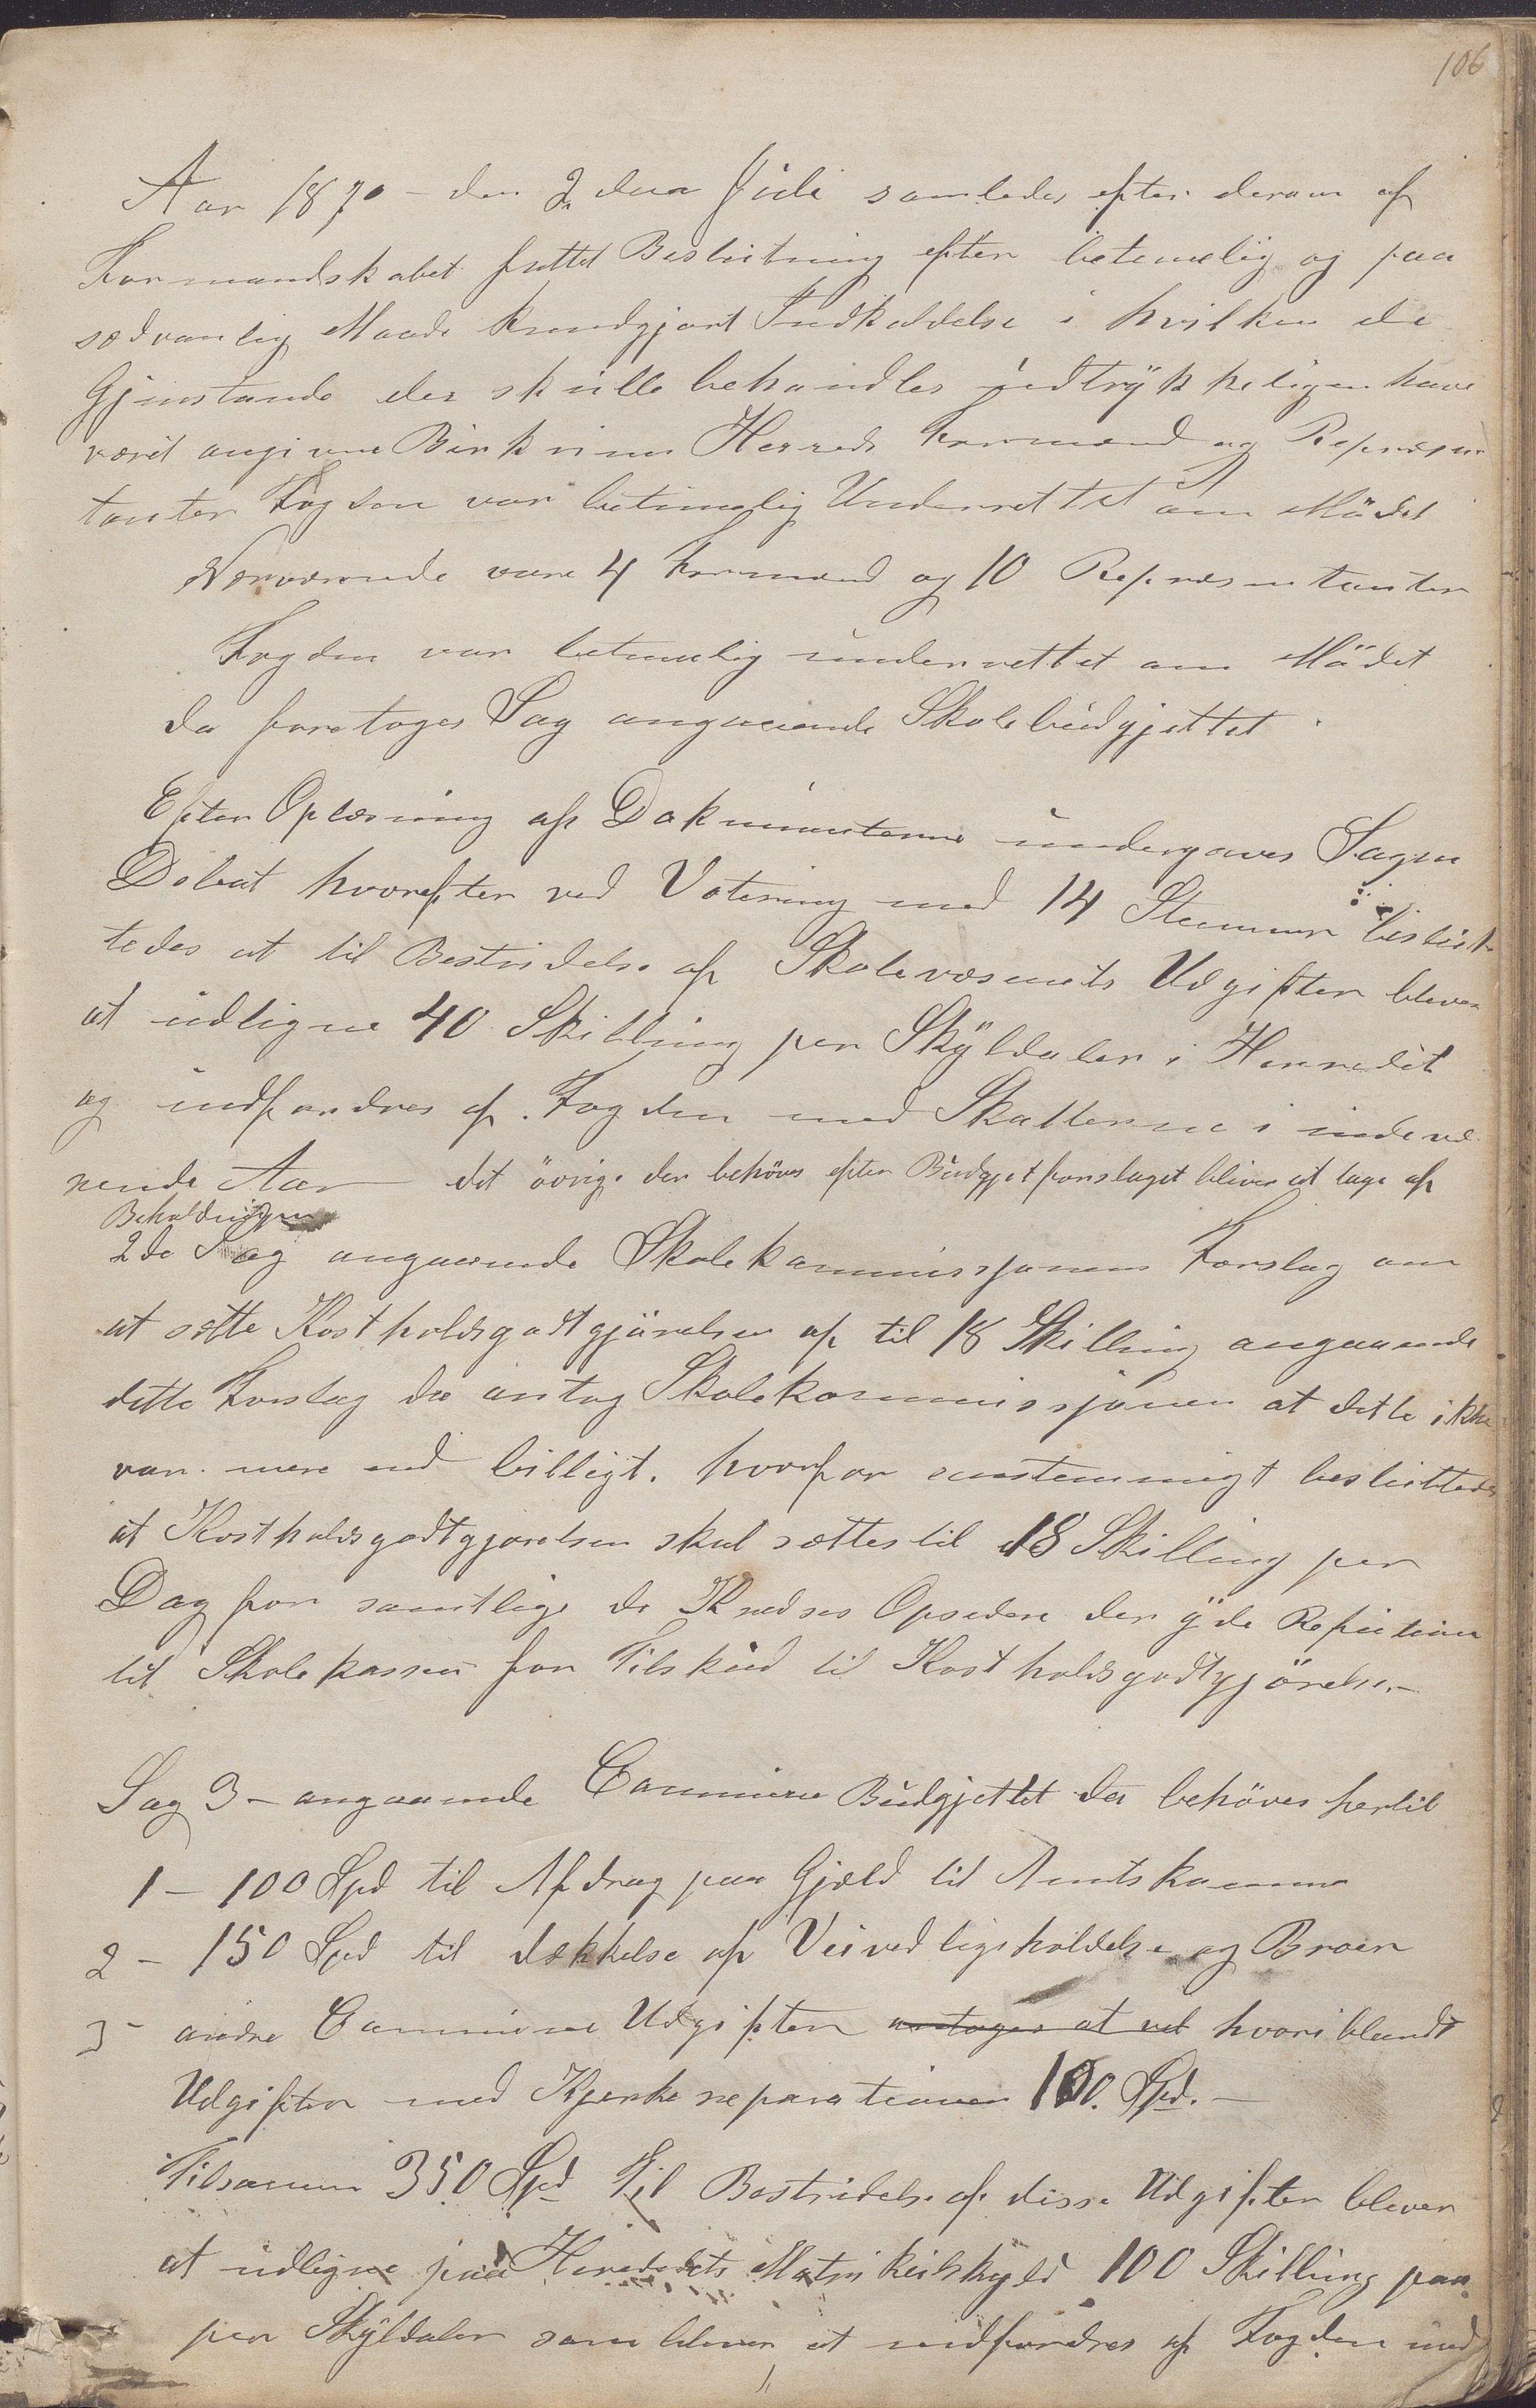 106
Aar 1870 – den 2 den Júli samledes efter derom af
Formandskabet fattet Beslútning efter betimelig og paa
sædvanlig Maade kundgjort Indkaldelse i hvilken de
Gjenstande der skúlle behandles údtrÿkkeligen have
været angivne Birkrims Herreds Formænd og Repræsen
tanter Fogden var betimelig Underrettet om Mödet
Nærværende vare 4 Formænd og 10 Repræsentanter
Fogden var betimelig únderrettet om Mödet
da foretoges Sag angaaende Skolebúdgjettet
Efter Oplæsning af Dokumenterne úndergaves Sagen
Debat hvorefter ved Votering med 14 Stemmer beslút
tedes at til Bestridelse af Skolevæsenets Udgifter bliver
at údligne 40 Skilling per Skÿldaler i Herredet
og indfordres af Fogden med Skatterne i indevæ
rende Aar det övrige der behöves efter Búdgjetforslaget bliver at tage af
Beholdningen
2de Sag angaaende Skolekommissjonens Forslag om
at sætte Kostholdsgodtgjörelsen af til 18 Skilling angaaende
dette Forslag da antog Skolekommissjonen at dette ikke
var mere end billigt. hvorfor enstemmigt beslúttedes
at Kostholdsgodtgjørelsen skal sættes til 18 Skilling per
Dag for samtlige de Kredses Opsidere der ÿde
til Skolekassen for Tilskúd til Kostholdsgodtgjörelse.–
Sag 3 – angaaende Commúne Búdgjettet da behöves hertil
1 – 100 Spd til Afdrag paa Gjæld til Amtskommúne
2 – 150 Spd til dækkelse af Veivedligeholdelse og Broer
3 – andre Commúne Udgifter antages at vel hvoriblandt
Udgifter med Kjerkereparationer 100. Spd. –
Tilsamen 350 Spd Til Bestridelse af disse Udgifter bliver
at údligne paa Herredets Matrikúlskyld 100 Skilling paa
per Skÿldaler som bliver at indfordres af Fogden med